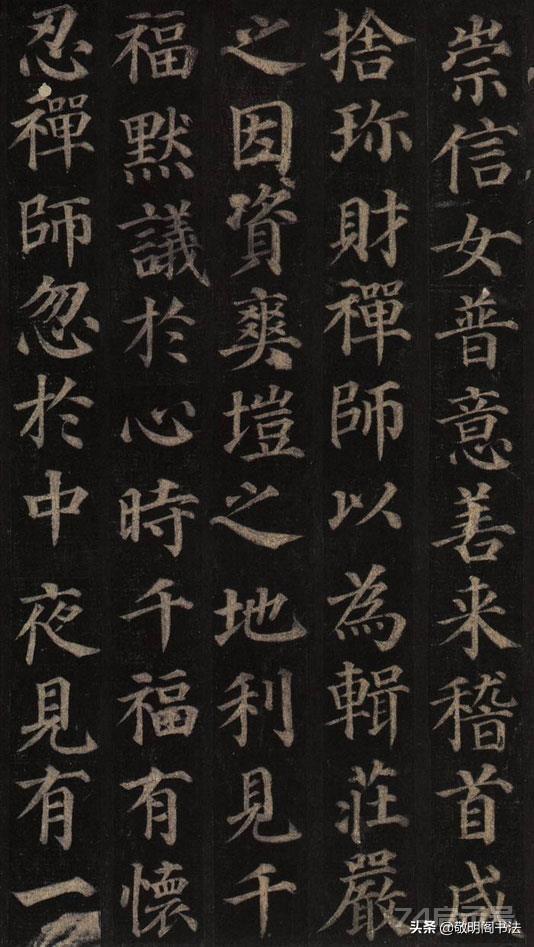 崇信女普意善来稽首咸
捨珎財禪師以為輯莊嚴
之因資爽塏之地利見千
福默議於心時千福有懷
忍禪師忽於中夜見有一
头条 @敬明阁书法